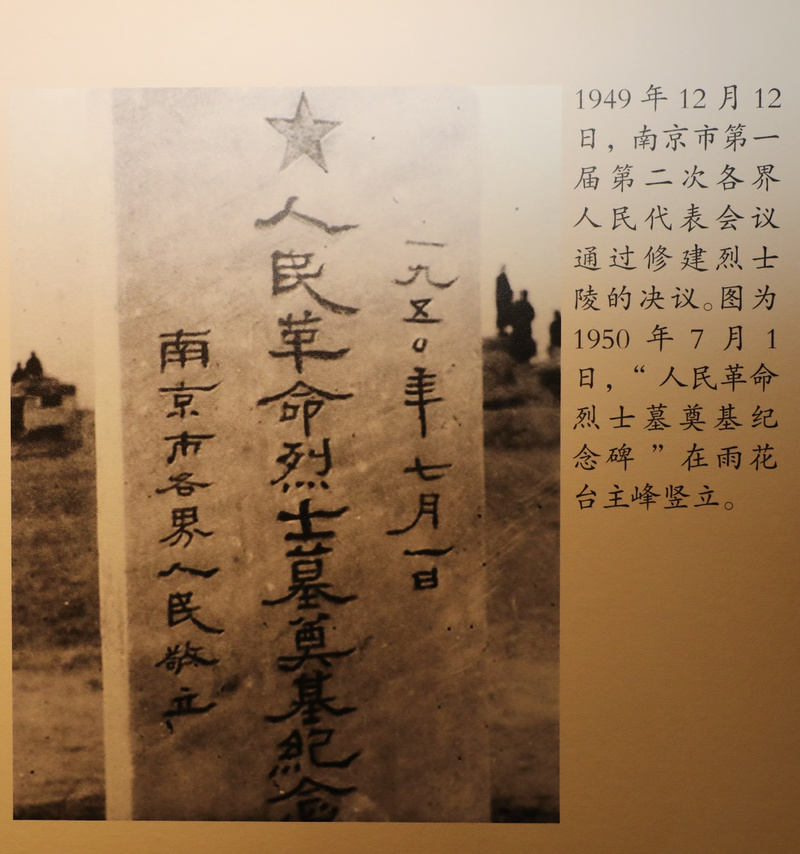 一九五〇年七月一日
人民革命烈士墓奠基紀念
南京市各界人民敬立
1949年12月12
日，南京市第一
届第二次各界
人民代表会议
通过修建烈士
陵的决议。图为
1950年7月1
日，“人民革命
烈士墓奠基纪
念碑”在雨花
台主峰竖立。